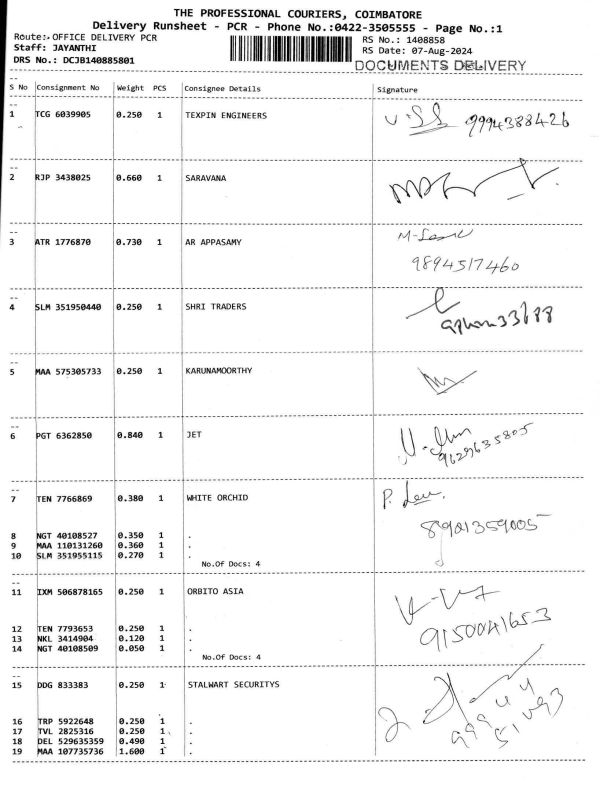 THE PROFESSIONAL COURIERS, COIMBATORE
Delivery Runsheet - PCR - Phone No.:0422-3505555 - Page No.:1
Route:- OFFICE DELIVERY PCR
Staff: JAYANTHI
DRS No.: DCJB140885801
RS No.: 1408858
RS Date: 07-Aug-2024
DOCUMENTS DELIVERY
S No Consignment No Weight PCS Consignee Details Signature
1 TCG 6039905 0.250 1 TEXPIN ENGINEERS 9994388426
2 RJP 3438025 0.660 1 SARAVANA
3 ATR 1776870 0.730 1 AR APPASAMY
9894517460
4 SLM 351950440 0.250 1 SHRI TRADERS
5 MAA 575305733 0.250 1 KARUNAMOORTHY
6 PGT 6362850 0.840 1 JET
9629635805
7 TEN 7766869 0.380 1 WHITE ORCHID
8901359005
8 NGT 40108527 0.350 1 .
9 MAA 110131260 0.360 1 .
10 SLM 351955115 0.270 1 .
No.Of Docs: 4
11 IXM 506878165 0.250 1 ORBITO ASIA
9150041653
12 TEN 7793653 0.250 1 .
13 NKL 3414904 0.120 1 .
14 NGT 40108509 0.050 1 .
No.Of Docs: 4
15 DDG 833383 0.250 1 STALWART SECURITYS
16 TRP 5922648 0.250 1 .
17 TVL 2825316 0.250 1 .
18 DEL 529635359 0.490 1 .
19 MAA 107735736 1.600 1 .